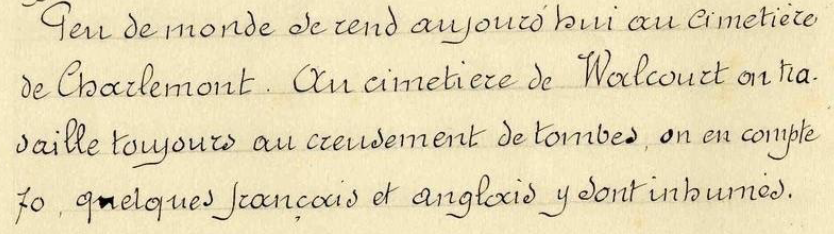 Peu de monde se rend aujourd'hui au cimetière
de Charlemont. Au cimetiere de Walcourt on tra-
vaille toujours au creusement de tombes, on en compte
70, quelques français et anglais y sont inhumés.